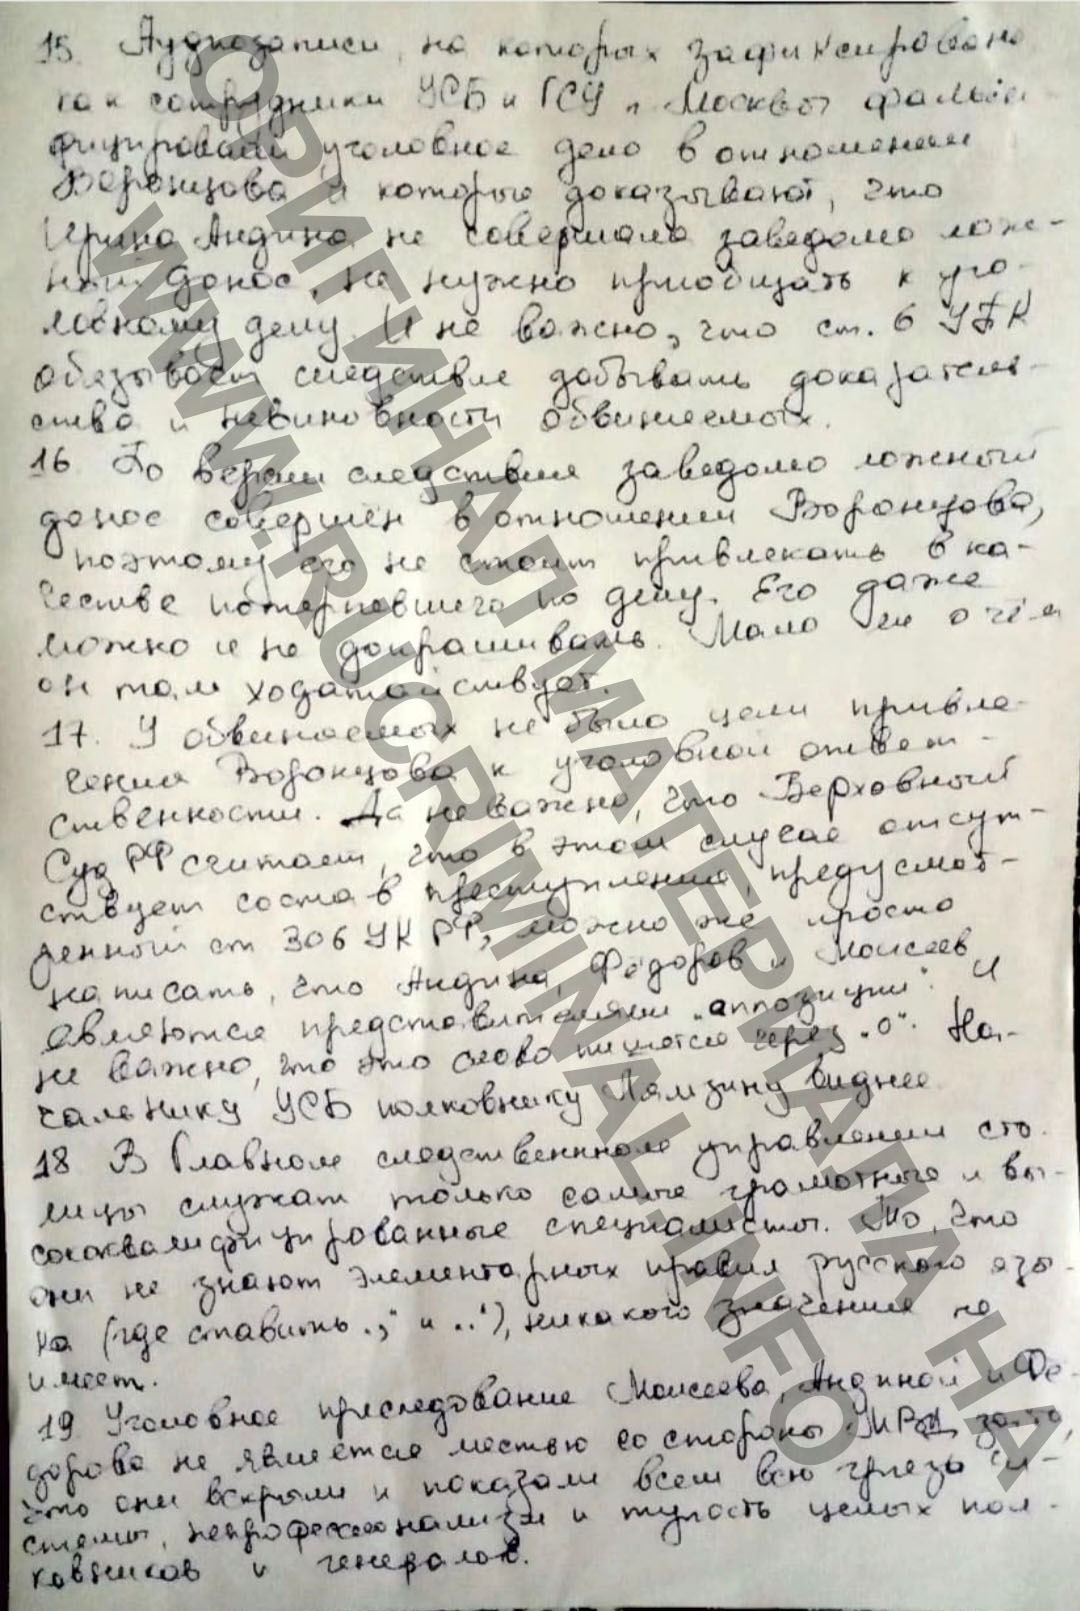 15 Аудиозаписи, на которых зафиксировано
как сотрудники УСБ и ГСУ г. Москвы фальси
фицировали уголовное дело в отношении
Воронцова и которые доказывают, что
Ирина Андина не совершала заведомо лож-
ный донос, не нужно приобщать к уго-
ловному делу. И не важно, что ст. 6 УПК
обязывает следствие добывать доказатель-
ства и невиновности обвиняемых.
16 По версии следствия заведомо ложный
донос совершён в отношении Воронцова,
поэтому его не стоит привлекать в ка-
честве потерпевшего по делу. Его даже
можно и не допрашивать. Мало ли о чём
он там ходатайствует.
17. У обвиняемых не было цели привле-
чения Воронцова к уголовной ответ-
ственности. Да неважно, что Верховный
Суд РФ считает, что в этом случае отсут-
ствует состав преступления, предусмот-
ренный ст 306 УК РФ, можно же просто
написать, что Андина, Фёдоров и Моисеев
являются представителями "аппозиции". И
не важно, что это слово пишется через "о". На-
чальнику УСБ полковнику Лямзину виднее.
18 В Главном следственном управлении сто-
лицы служат только самые грамотные и вы-
сококвалифицированные специалисты. То, что
они не знают элементарных правил русского язы-
ка (где ставить "," и "."), никакого значения не
имеет.
19 Уголовное преследование Моисеева, Андиной и Фё-
дорова не является местью со стороны МВД за то,
что они вскрыли и показали всем всю грязь си-
стемы, непрофессионализм и тупость целых пол-
ковников и генералов.
ОРИГИНАЛ МАТЕРИАЛА НА
WWW.RUCRIMINAL.INFO